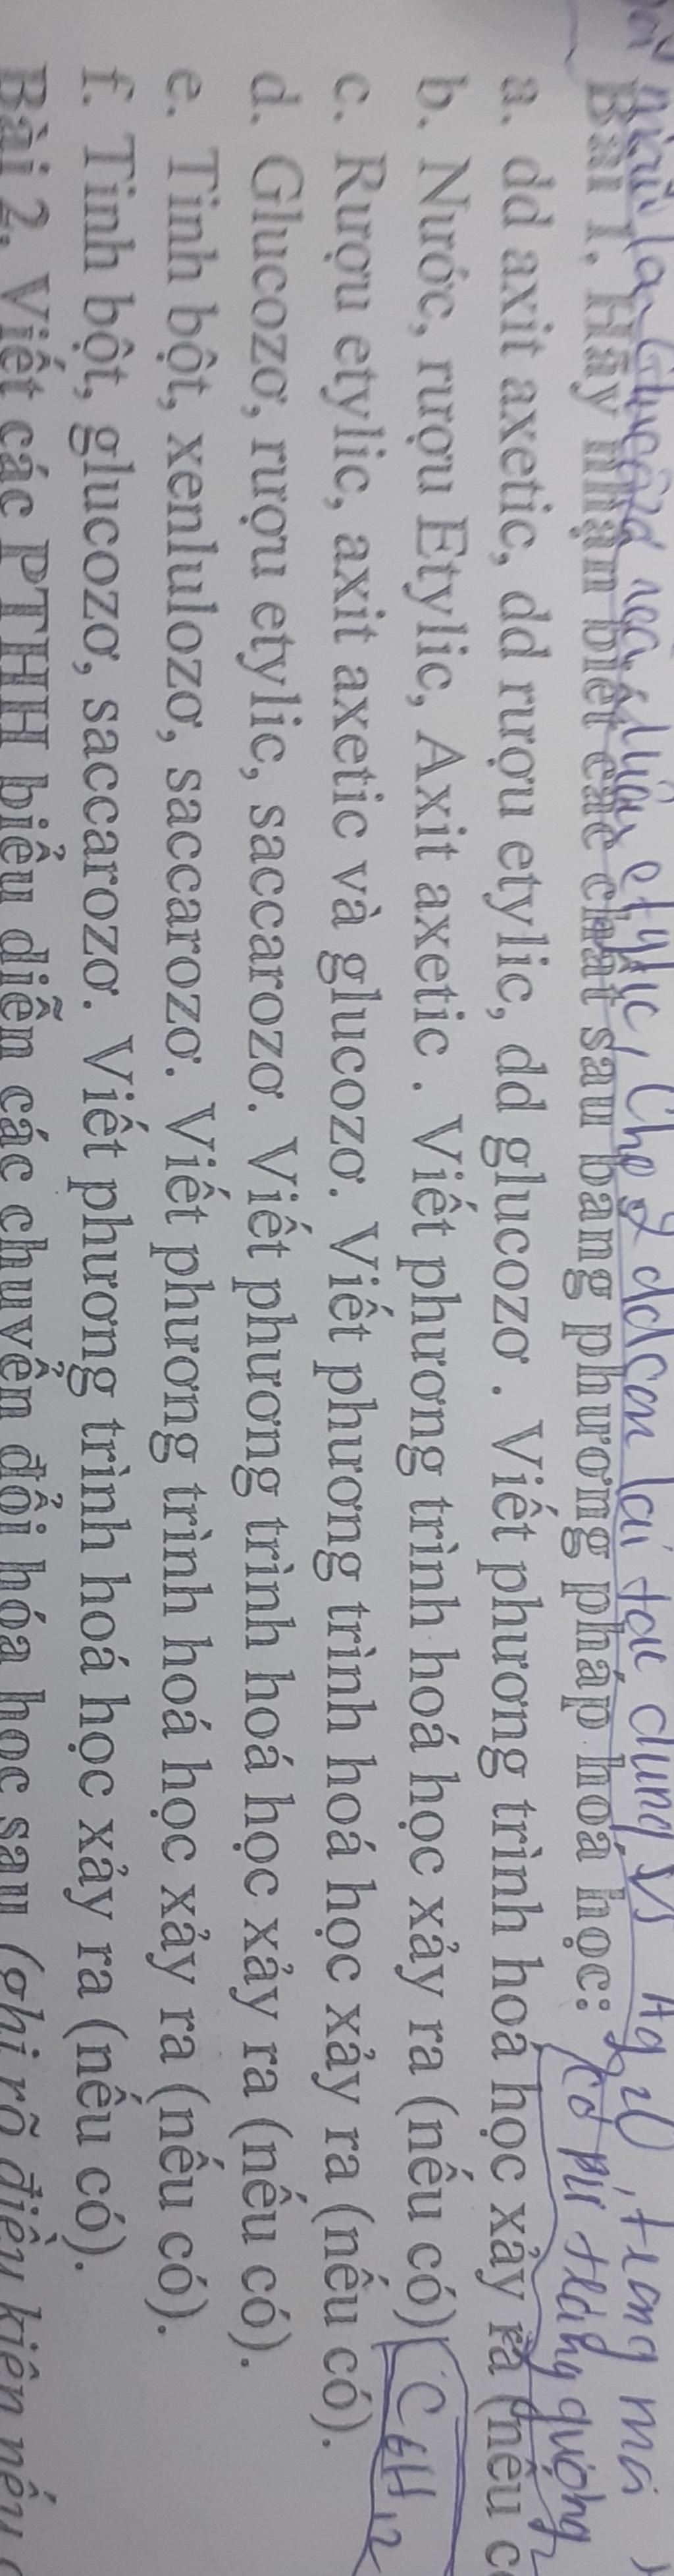 là Glucozơ rượu etylic, Cho 2 dd còn lại tác dụng vs Ag2O, trong
có pứ tráng gương
Bài 1. Hãy nhận biết các chất sau bằng phương pháp hoá học:
a. dd axit axetic, dd rượu etylic, dd glucozơ . Viết phương trình hoá học xảy ra (nếu c
b. Nước, rượu Etylic, Axit axetic . Viết phương trình hoá học xảy ra (nếu có)
C6H12
c. Rượu etylic, axit axetic và glucozơ. Viết phương trình hoá học xảy ra (nếu có).
d. Glucozơ, rượu etylic, saccarozơ. Viết phương trình hoá học xảy ra (nếu có).
e. Tinh bột, xenlulozơ, saccarozơ. Viết phương trình hoá học xảy ra (nếu có).
f. Tinh bột, glucozơ, saccarozơ. Viết phương trình hoá học xảy ra (nếu có).
Bài 2. Viết các PTHH biểu diễn các chuyển đổi hóa học sau (ghi rõ điều kiện nếu